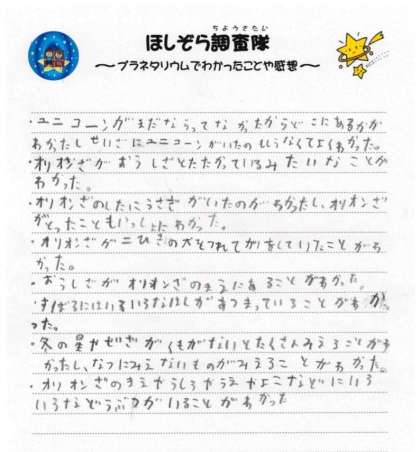 ちょうさたい
ほしぞら調査隊
～プラネタリウムでわかったことや感想～
・ユニコーンがまだならってなかったからどこにあるかが
わかったしせいざにユニコーンがいたのしらなくてよくわかった。
・オリオンざがおうしざとたたかっているみたいなことが
わかった。
・オリオンざのしたにうさぎがいたのがわかったし、オリオンざ
がとったことも わかった。
・オリオンざが二ひきの犬をつれてかりをしていたことがわ
かった。
・おうしざがオリオンざのまえにあることがわかった。
すばるにはいろいろなほしがあつまっていることがわかっ
った。
・冬の星やせいざがくもがないとたくさんみえることがわ
かったし、なつにみえないものがみえることがわかった。
・オリオンざのまえやうしろやうえやよこなどにいろ
いろなどうぶつがいることがわかった